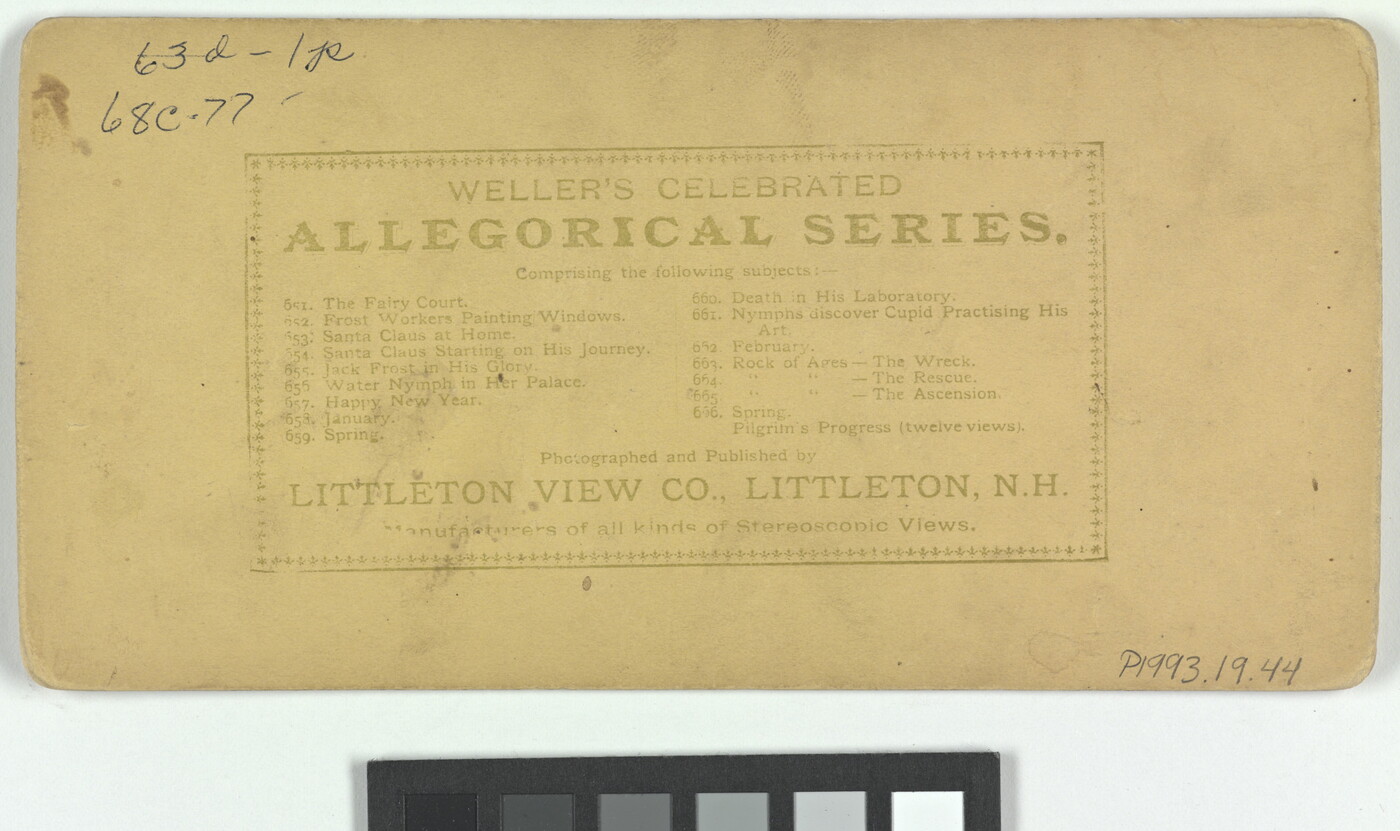 63d - 1p
68C-77
WELLER'S CELEBRATED
ALLEGORICAL SERIES.
Comprising the following subjects:—
651. The Fairy Court.
652. Frost Workers Painting Windows.
653. Santa Claus at Home.
654. Santa Claus Starting on His Journey.
655. Jack Frost in His Glory.
656 Water Nymph in Her Palace.
657. Happy New Year.
658. January.
659. Spring.
660. Death in His Laboratory.
661. Nymphs discover Cupid Practising His
Art.
662. February.
663. Rock of Ages — The Wreck.
664. " " — The Rescue.
665 " " — The Ascension.
666. Spring.
Pilgrim's Progress (twelve views).
Photographed and Published by
LITTLETON VIEW CO., LITTLETON, N.H.
Manufacturers of all kinds of Stereoscopic Views.
P1993.19.44